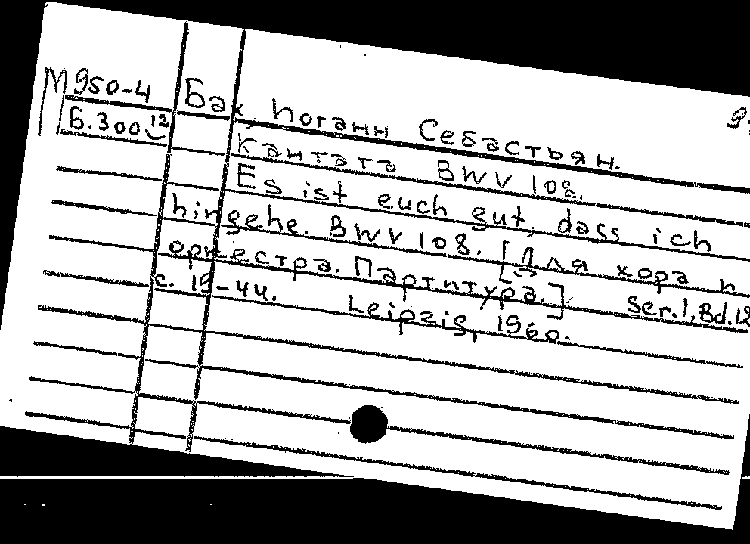 М950-4
Б.300 12
Бах, Иоганн Себастьян.
Кантата BWV 108.
Es ist euch gut, dass ich
hingehe. BWV 108. [Для хора и
оркестра. Партитура.] Ser.1, Bd.12
с. 19-44. Leipzig, 1960.